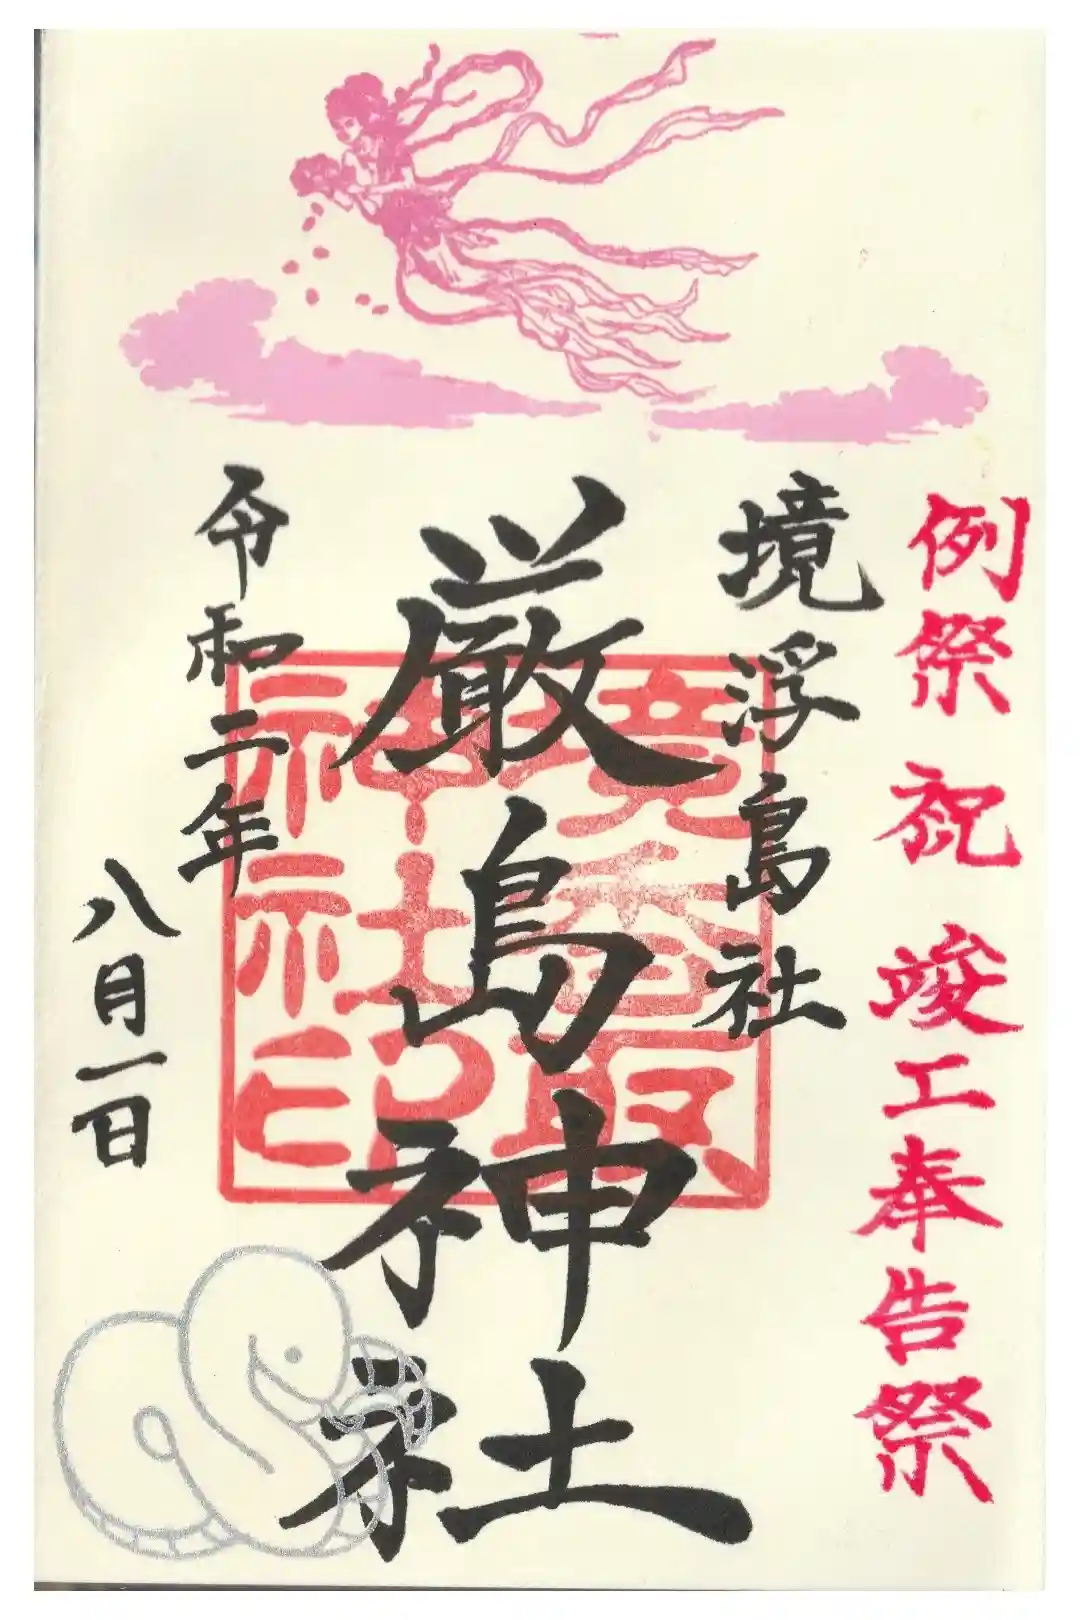 例祭 祝 竣工奉告祭
境浮島社
厳島神社
令和二年
八月一日